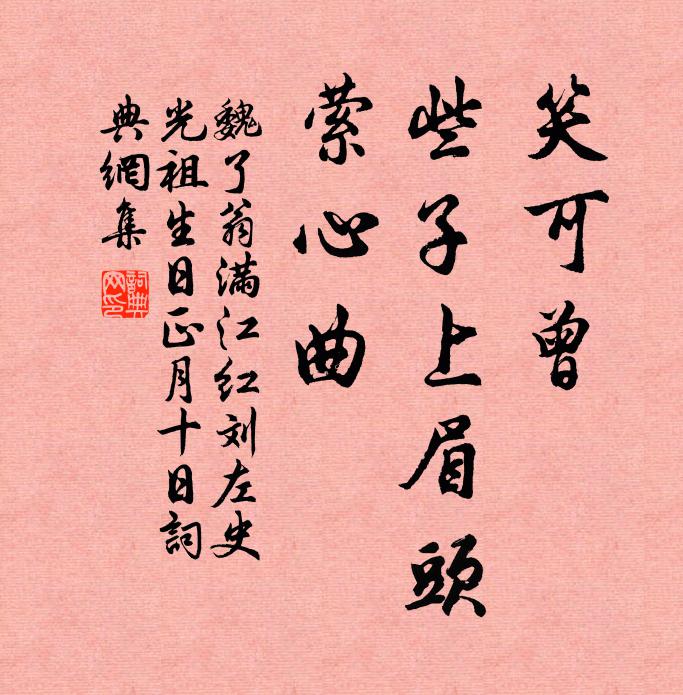 笑可曾
些子上眉頭
萦心曲
魏了翁滿江红刘左史
光祖生日正月十日詞
典網集
詞典网印